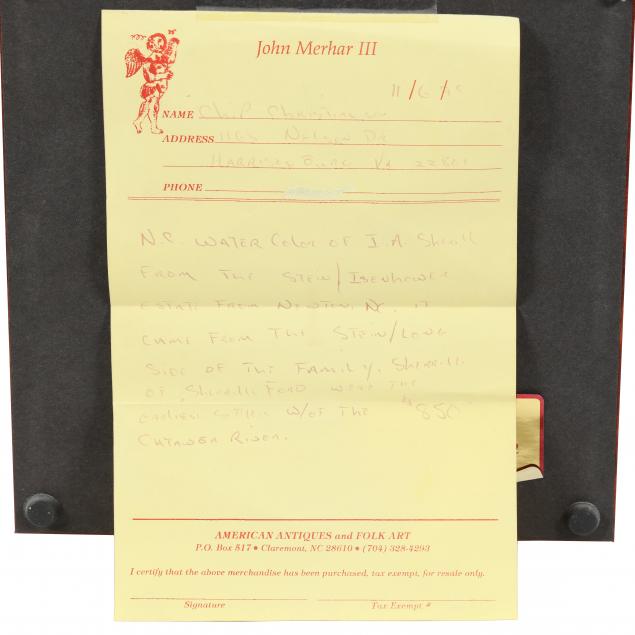 John Merhar III
11/6/
NAME Chip
ADDRESS 1165 Nelson Dr
Harrison Burg Va 22801
PHONE
N.C. Water Color of I.A. Sherill
From the Stein/Isenhower
Estate From Newton, NC. it
came From the Stein/Long
side of the Family. Sherrills
of Sherrills Ford were the
earliest W/of the $850
River.
AMERICAN ANTIQUES and FOLK ART
P.O. Box 517 • Claremont, NC 28610 • (704) 328-4293
I certify that the above merchandise has been purchased, tax exempt, for resale only.
Signature Tax Exempt #